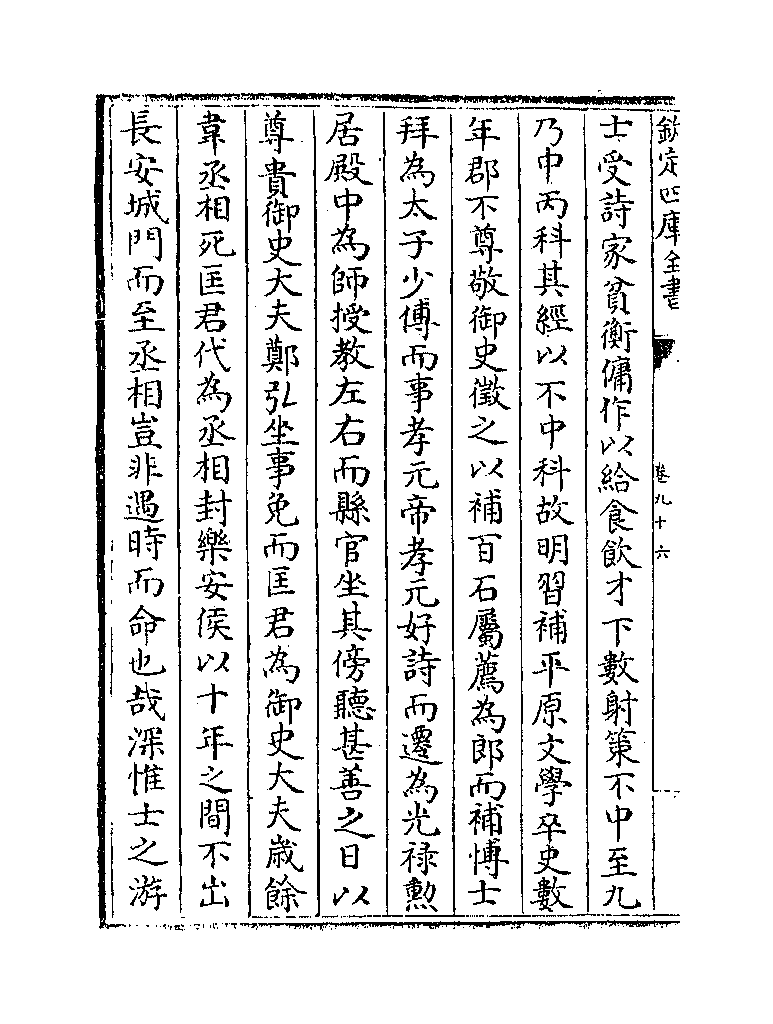 欽定四庫全書
卷九十六
士受詩家貧衡傭作以給食飲才下數射策不中至九
乃中丙科其經以不中科故明習補平原文學卒史數
年郡不尊敬御史徵之以補百石屬薦為郎而補博士
拜為太子少傅而事孝元帝孝元好詩而遷為光禄勲
居殿中為師授教左右而縣官坐其傍聽甚善之日以
尊貴御史大夫鄭弘坐事免而匡君為御史大夫歳餘
韋丞相死匡君代為丞相封樂安侯以十年之間不出
長安城門而至丞相豈非遇時而命也哉深惟士之游